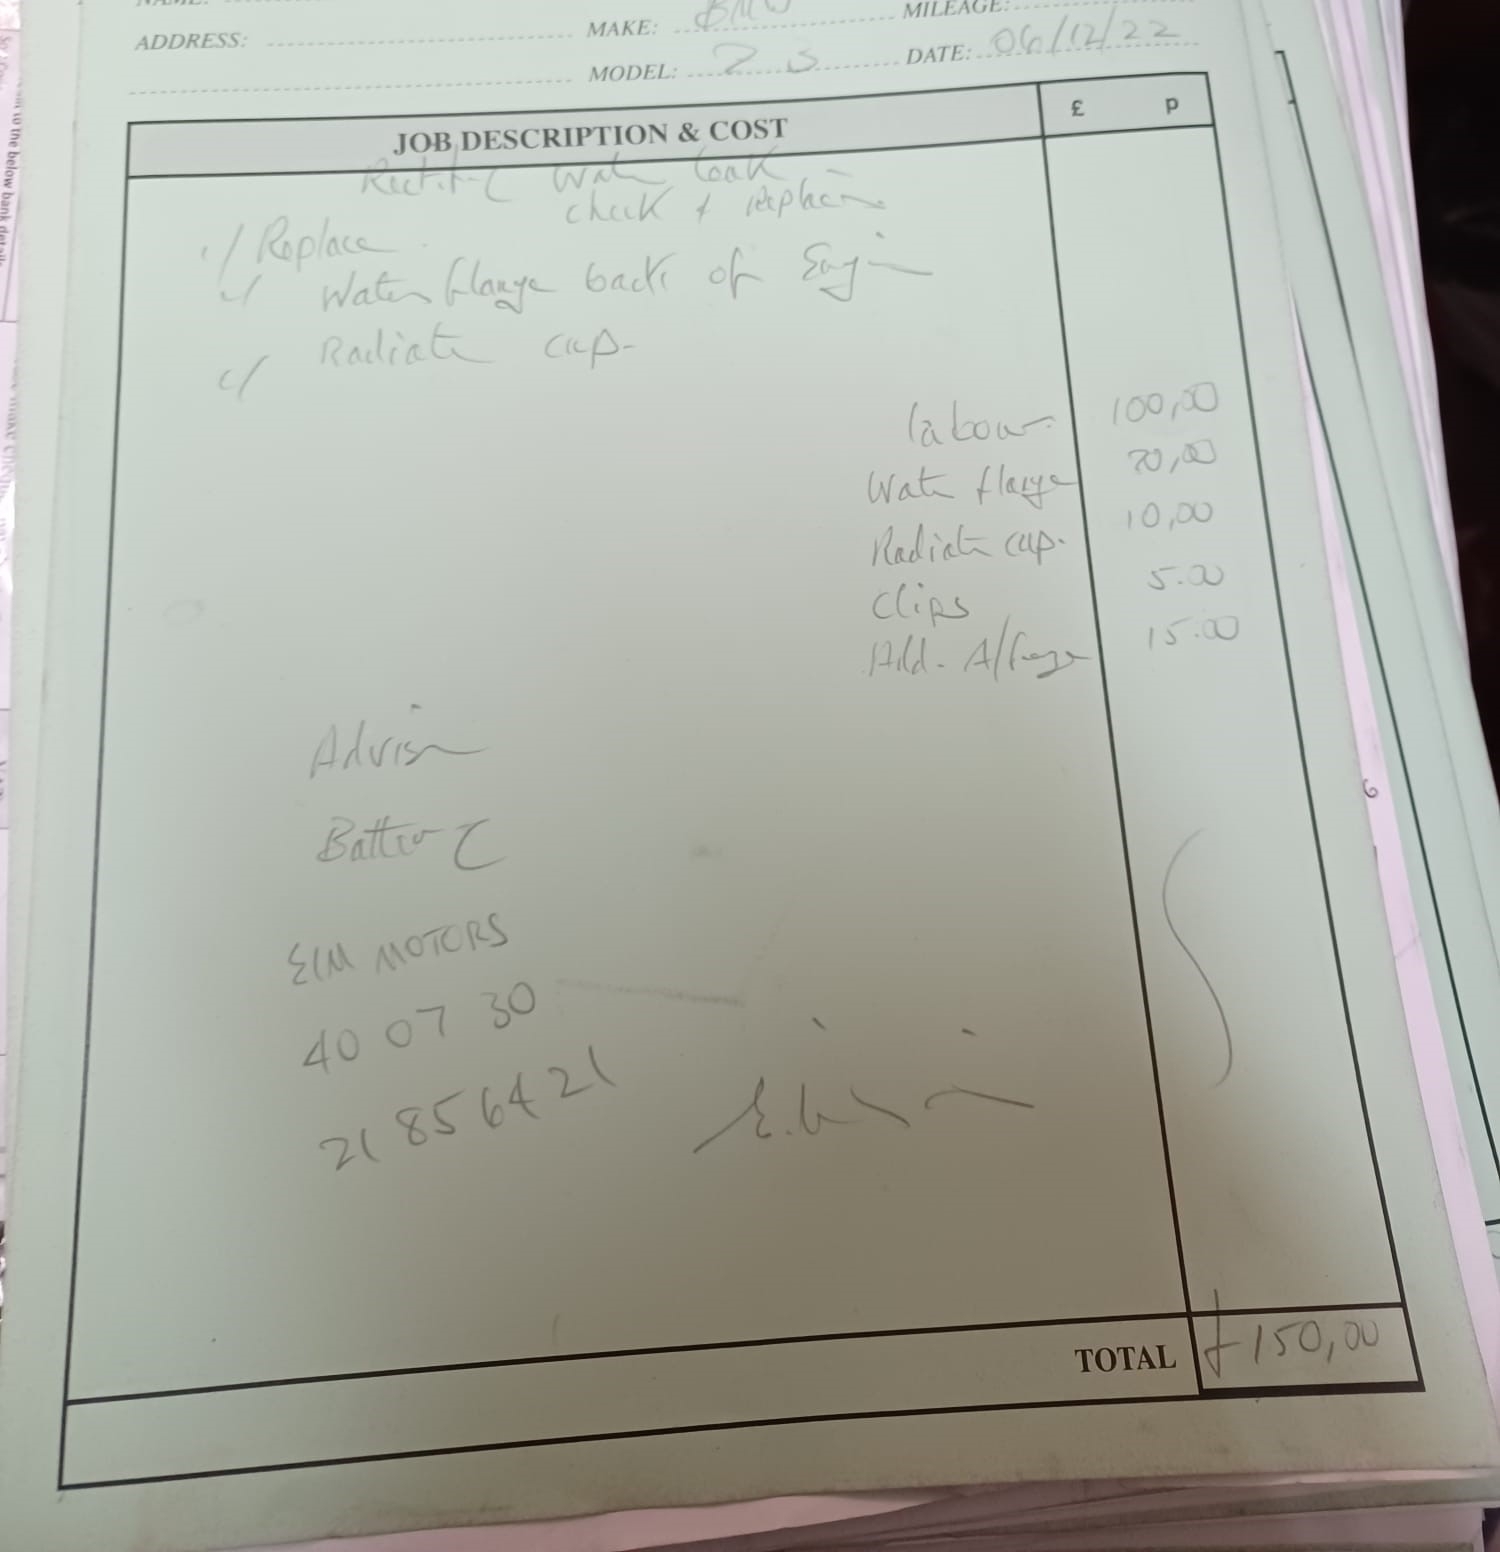 ADDRESS: MAKE: BMW MILEAGE:
MODEL: Z3 DATE: 06/12/22
JOB DESCRIPTION & COST £ P
Rectify Water Leak
check & replace
Replace
Water flange back of Engine
Radiator cap.
labour 100,00
Water flange 20,00
Radiator cap. 10,00
Clips 5.00
Add. A/freeze 15.00
Advise
Battery
ELM MOTORS
40 07 30
21856421
TOTAL £150,00
to the below bank details
6